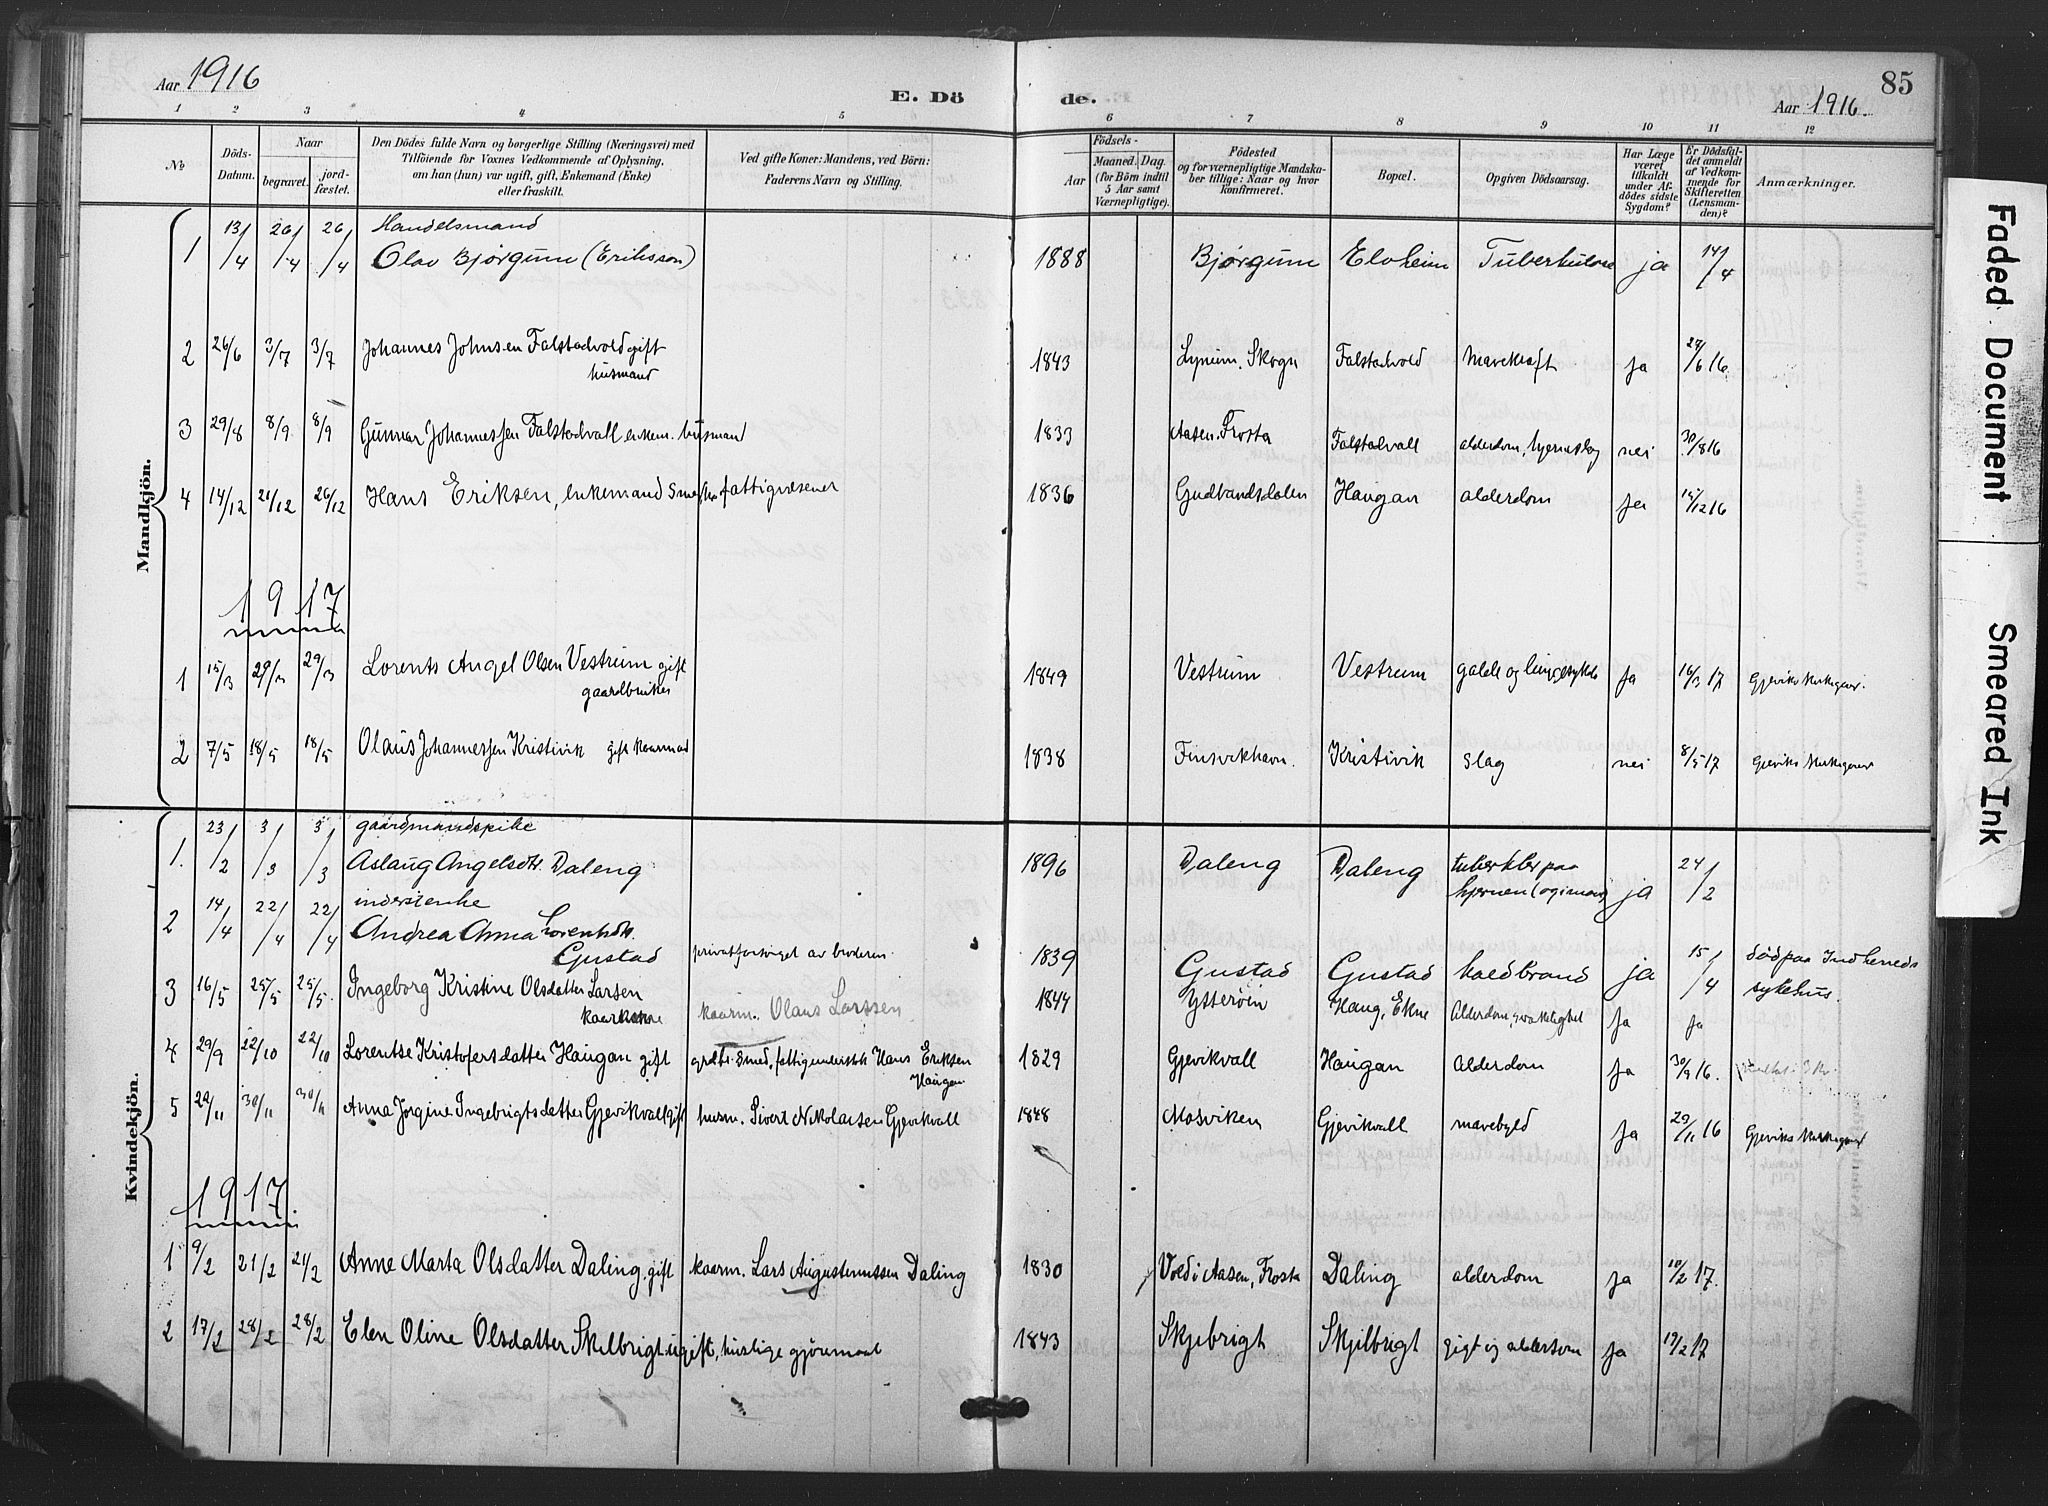 Aar 1916
E. Dö de.
85
Aar 1916.
1 2 3 4 5 6 7 8 9 10 11 12
No
Döds-Datum.
Naar
begravet.
jord-fæstet.
Den Dödes fulde Navn og borgerlige Stilling (Næringsvei) med
Tilföiende for Voxnes Vedkommende af Oplysning,
om han (hun) var ugift, gift, Enkemand (Enke)
eller fraskilt.
Ved gifte Koner: Mandens, ved Börn:
Faderens Navn og Stilling.
Födsels-
Aar
Maaned. Dag.
(for Börn indtil
5 Aar samt
Værnepligtige).
Födested
og for værnepligtige Mandska-
ber tillige: Naar og hvor
konfirmeret.
Bopæl.
Opgiven Dödsaarsag.
Har Læge
været
tilkaldt
under Af-
dödes sidste
Sygdom?
Er Dödsfal-
det anmeldt
af Vedkom-
mende for
Skifteretten
(Lensman-
den)?
Anmærkninger.
Mandkjön.
1 13/4 26/4 26/4 Handelsmand
Olav Bjørgum (Eriksson) 1888 Bjørgum Elvheim Tuberkulose ja 14/4
2 26/6 3/7 3/7 Johannes Johnsen Falstadvold gift
husmand 1843 Skogn Falstadvold Mavekræft ja 29/6 16
3 29/8 8/9 8/9 Gunnar Johannessen Falstadvall enkem. husmand 1833 Aasen. Frosta Falstadvall alderdom, hjerneslag nei 30/8 16
4 14/12 21/12 26/12 Hans Eriksen, enkemand fattigvæsenet 1836 Gudbrandsdalen Haugan alderdom ja 15/12 16
1917
1 15/3 29/3 29/3 Lorents Angel Olsen Vestrum gift
gaardbruker 1849 Vestrum Vestrum galde og ja 16/3 17
2 7/5 18/5 18/5 Olaus Johannessen Kristivik gift kaarmand 1838 Kristivik slag nei 8/5 17
Kvindekjön.
1. 23/2 3/3 3/3 gaardmandspike
Aslaug Angelsdtr. Daleng 1896 Daleng Daleng tuberkler paa
hjernen ja 24/2
2 14/4 22/4 22/4 inderstenke
Andrea Anna Lorentsdtr.
Gustad privatforsørget av broderen 1839 Gustad Gustad koldbrand ja 15/4 død paa Indherreds
sykehus.
3 16/5 25/5 25/5. Ingeborg Kristine Olsdatter Larsen
kaarkone kaarm. Olaus Larssen 1844 Ytterøin Haug, Ekne Alderdomsvakelighet ja ja
4 29/9 22/10 22/10 Lorentse Kristofersdatter Haugan gift smed, Hans Eriksen
Haugan 1829 Gjevikvall Haugan Alderdom ja 30/9 16.
5 22/11 30/11 30/11 Anna Jorgine Ingebrigtsdatter Gjevikvall gift husm. Sivert Nikolaisen Gjevikvall 1848 Mosviken Gjevikvall mavebyld ja 29/11 16
1917
1 9/2 21/2 21/2 Anne Marta Olsdatter Daling, gift kaarm. Lars Augustinussen Daling 1830 Vold i Aasen, Frosta Daling alderdom ja 10/2 17.
2 17/2 28/2 28/2 Elen Oline Olsdatter Skelbrigt ugift, huslige gjøremaal 1843 Skjebrigt Skjilbrigt gigt og alderdom ja 19/2 17
Faded Document
Smeared Ink